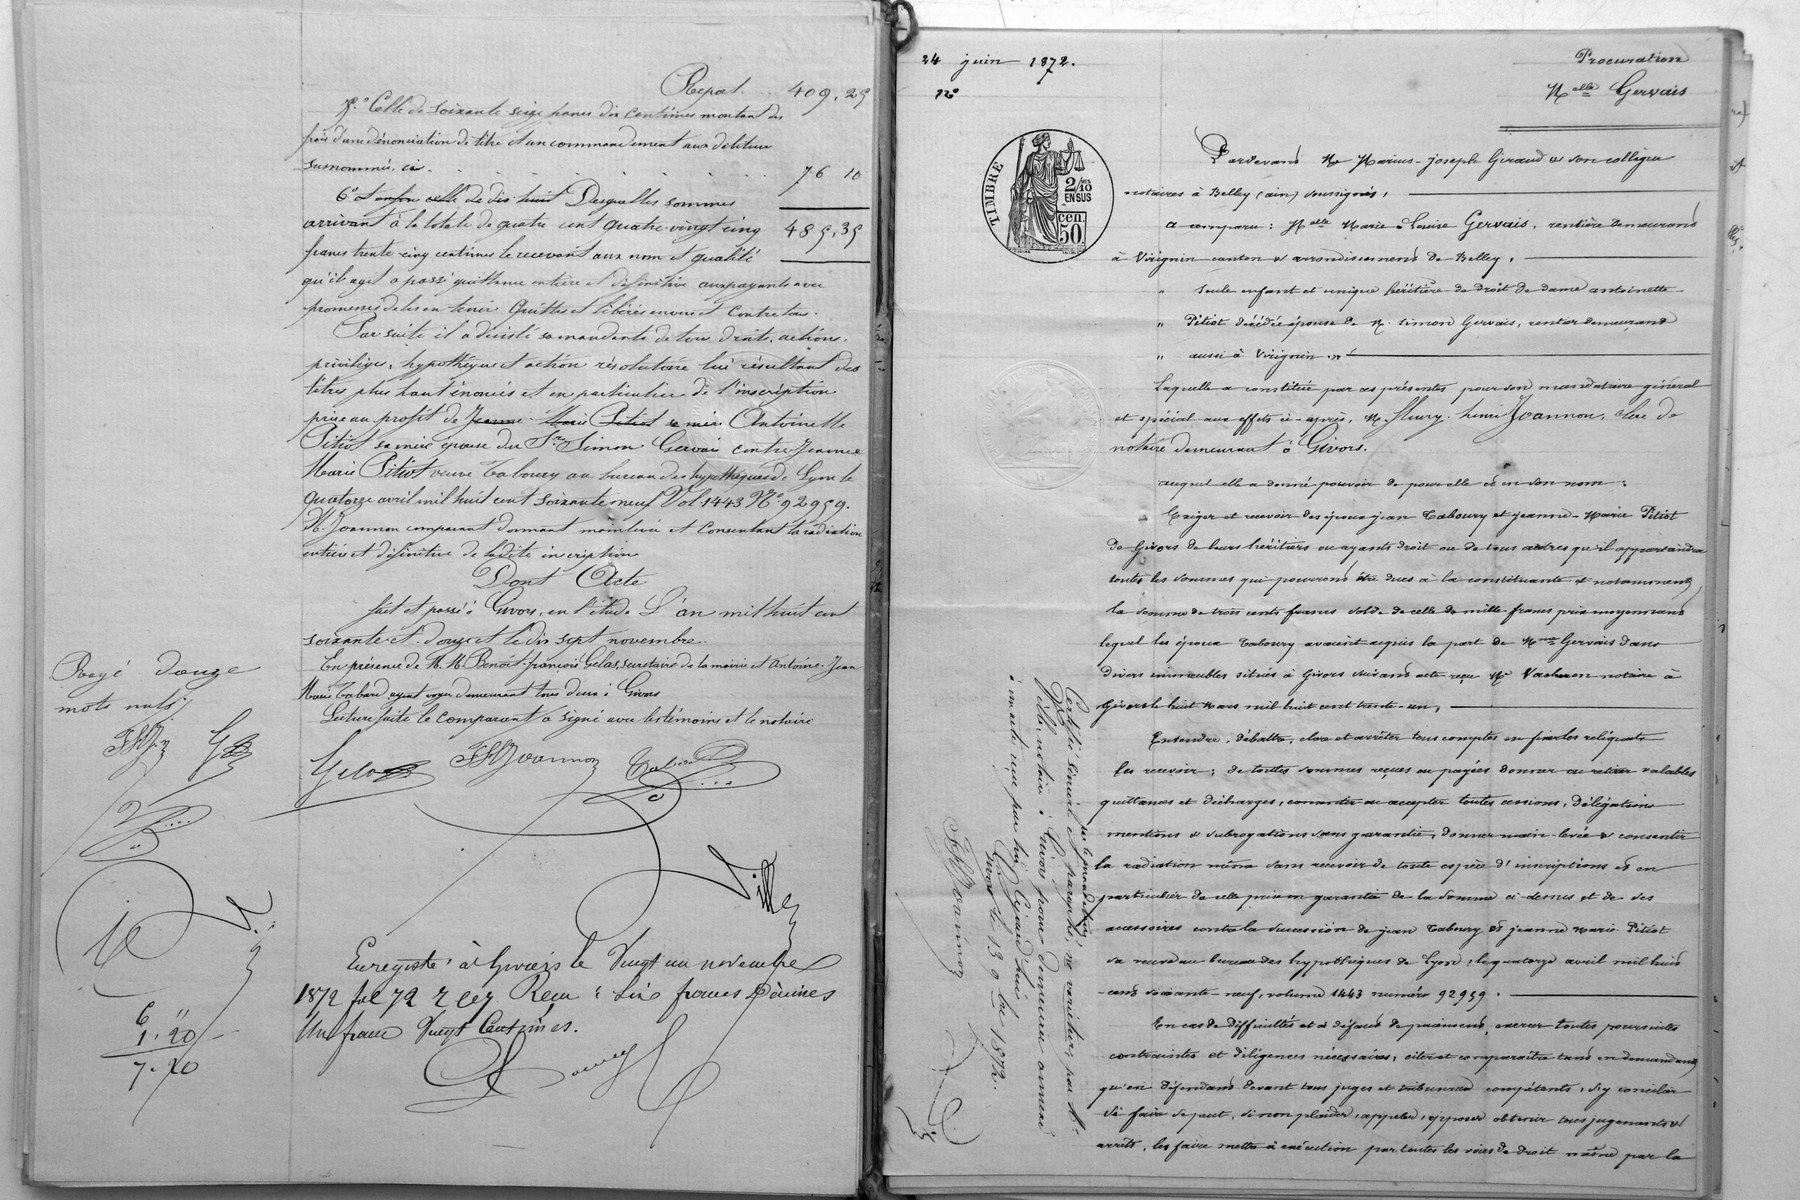 Report. 409,25
5° Celle de soixante seize francs dix centimes montant des
frais d'une dénonciation de titre et un commandement aux débiteurs
surnommés, ci . . . . . . . . 76 10
6° Enfin celle de dix huit Desquelles sommes
arrivant à la totale de quatre cent quatre-vingt cinq 485,35
francs trente cinq centimes le recevant aux nom et qualité
qu'il agit a passé quittance entière et définitive aux payants avec
promesse de les en tenir Quittes et libérés envers et contre tous.
Par suite il a désisté sa mandante de tous droits, actions,
privilège, hypothèque et action résolutoire lui résultant des
titres plus haut énoncés et en particulier de l'inscription
prise au profit de Jeanne Marie Pitiot sa mère Antoinette
Pitiot sa mère épouse du Sr. Simon Gervais contre Jeanne
Marie Pitiot veuve Taboury au bureau des hypothèques de Lyon le
quatorze avril mil huit cent soixante neuf Vol. 1443 N° 92959.
M. Joannon comparant donnant mainlevée et consentant la radiation
entière et définitive de ladite inscription
Dont Acte
fait et passé à Givors, en l'étude L'an mil huit cent
soixante-et-douze et le dix sept novembre.
En présence de M.M. Benoit-françois Gelas secrétaire de la mairie et Antoine-Jean
Marie Tabard agent voyer demeurant tous deux à Givors
Lecture faite le comparant a signé avec les témoins et le notaire
Rayé douze
mots nuls
Gelas FHJoannon Tabard
Ville
Enregistré à Givors le Vingt un novembre
1872 fol 72 Reçu : Six francs Décimes
Un franc Vingt Centimes.
6 "
1.20
7.20
24 juin 1872.
Procuration
Melle Gervais
TIMBRE
2/10
EN SUS
50 cen.
Pardevant Me Marius-Joseph Giraud & son collègue
notaires à Belley (ain) soussignés,
a comparu : Melle Marie-Louise Gervais, rentière demeurant
à Virignin canton & arrondissement de Belley,
" Seule enfant et unique héritière de droit de dame antoinette
" Pitiot décédée épouse de M. Simon Gervais, rentier demeurant
" aussi à Virignin. "
Laquelle a constitué par ces présentes pour son mandataire général
et spécial aux effets ci-après, M. fleury henri Joannon, clerc de
notaire demeurant à Givors.
auquel elle a donné pouvoir de pour elle et en son nom :
Exiger et recevoir des époux jean Taboury et jeanne-Marie Pitiot
de Givors de leurs héritiers ou ayants droit ou de tous autres qu'il appartiendra
toutes les sommes qui pourront être dues à la constituante & notamment
la somme de trois cents francs solde de celle de mille francs prix moyennant
lequel les époux Taboury avaient acquis la part de Mme Gervais dans
divers immeubles situés à Givors suivant acte reçu Me Vacheron notaire à
Givors le huit Mars mil huit cent trente-un,
Entendre, débattre, clore et arrêter tous comptes en fixer les reliquats
les recevoir ; de toutes sommes reçues ou payées donner ou retirer valables
quittances et décharges, consentir ou accepter toutes cessions, délégations
mentions & subrogations sans garantie, donner main-levée & consentir
la radiation même sans recevoir de toute espèce d'inscriptions et en
particulier de celle prise en garantie de la somme ci-dessus et de ses
accessoires contre la succession de jean Taboury et jeanne Marie Pitiot
sa veuve au bureau des hypothèques de Lyon, le quatorze avril mil huit
cent soixante-neuf, volume 1443 numéro 92959.
En cas de difficultés et à défaut de paiement, exercer toutes poursuites
contraintes et diligences nécessaires, citer et comparaître tant en demandant
qu'en défendant devant tous juges et tribunaux compétents, s'y concilier
si faire se peut, sinon plaider, appeler, opposer obtenir tous jugements et
arrêts, les faire mettre à exécution par toutes les voies de droit même par la
Certifié sincère et paraphé, ne varietur, par Me
Ville, notaire à Givors pour demeurer annexé
à l'acte reçu par lui
par le mandataire,
Givors le 13 9bre 1872.
FHJoannon